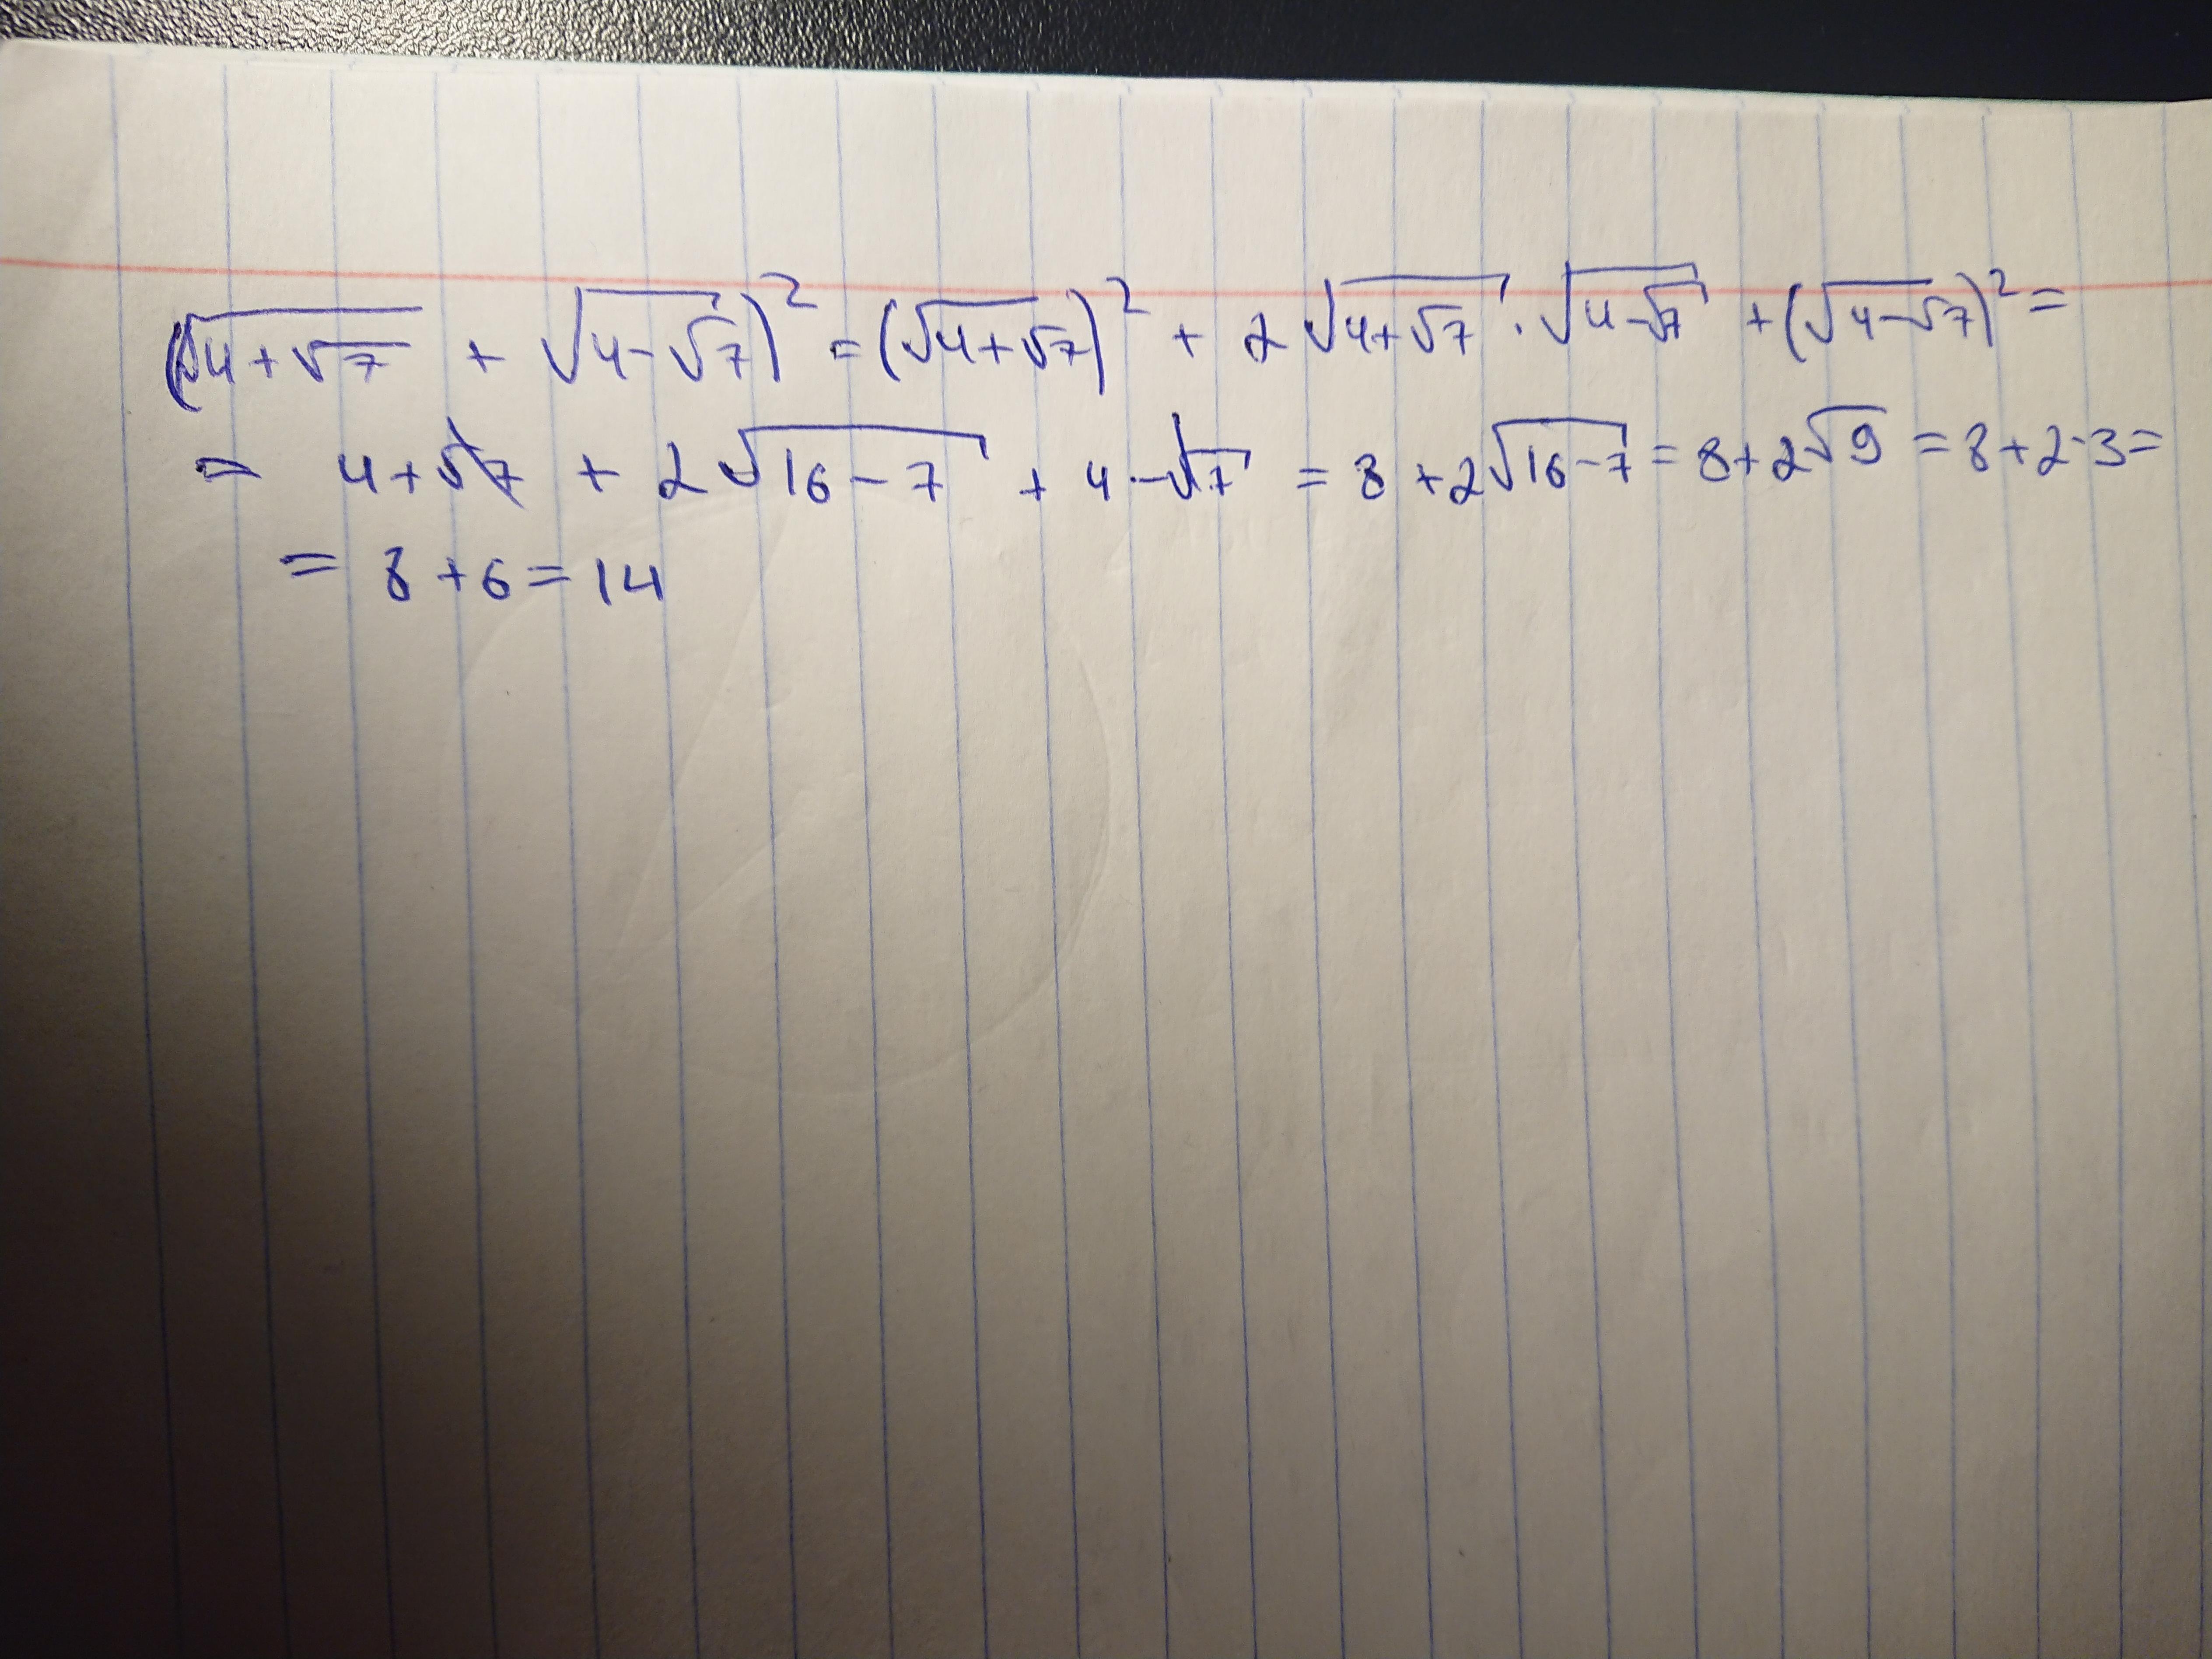 (√(4+√7) + √(4-√7))² = (√(4+√7))² + 2√(4+√7) · √(4-√7) + (√(4-√7))² =
= 4+√7 + 2√(16-7) + 4-√7 = 8+2√(16-7) = 8+2√9 = 8+2·3=
= 8+6=14